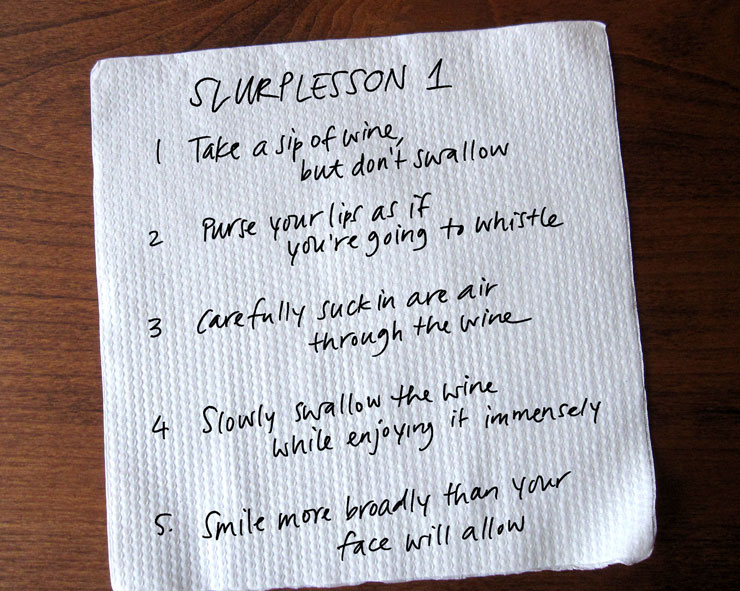 SLURPLESSON 1
1 Take a sip of wine,
but don't swallow
2 Purse your lips as if
you're going to whistle
3 Carefully suck in are air
through the wine
4 Slowly swallow the wine
while enjoying it immensely
5. Smile more broadly than your
face will allow